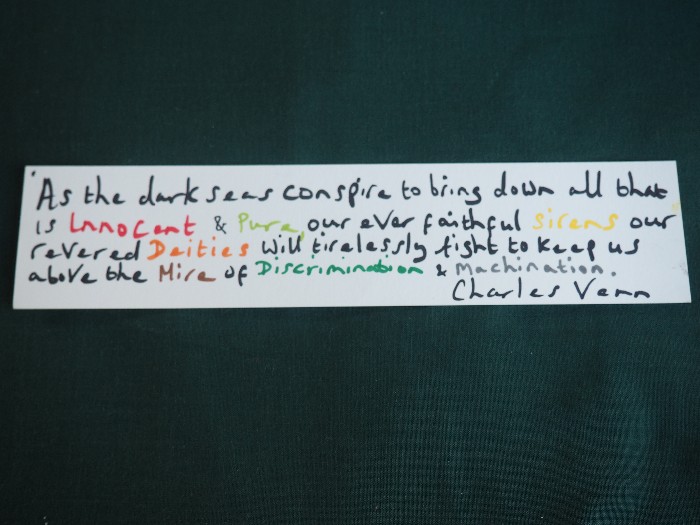 'As the dark seas conspire to bring down all that
is Innocent & Pure, our ever faithful sirens our
revered Deities will tirelessly fight to keep us
above the Mire of Discrimination & Machination.
Charles Venn